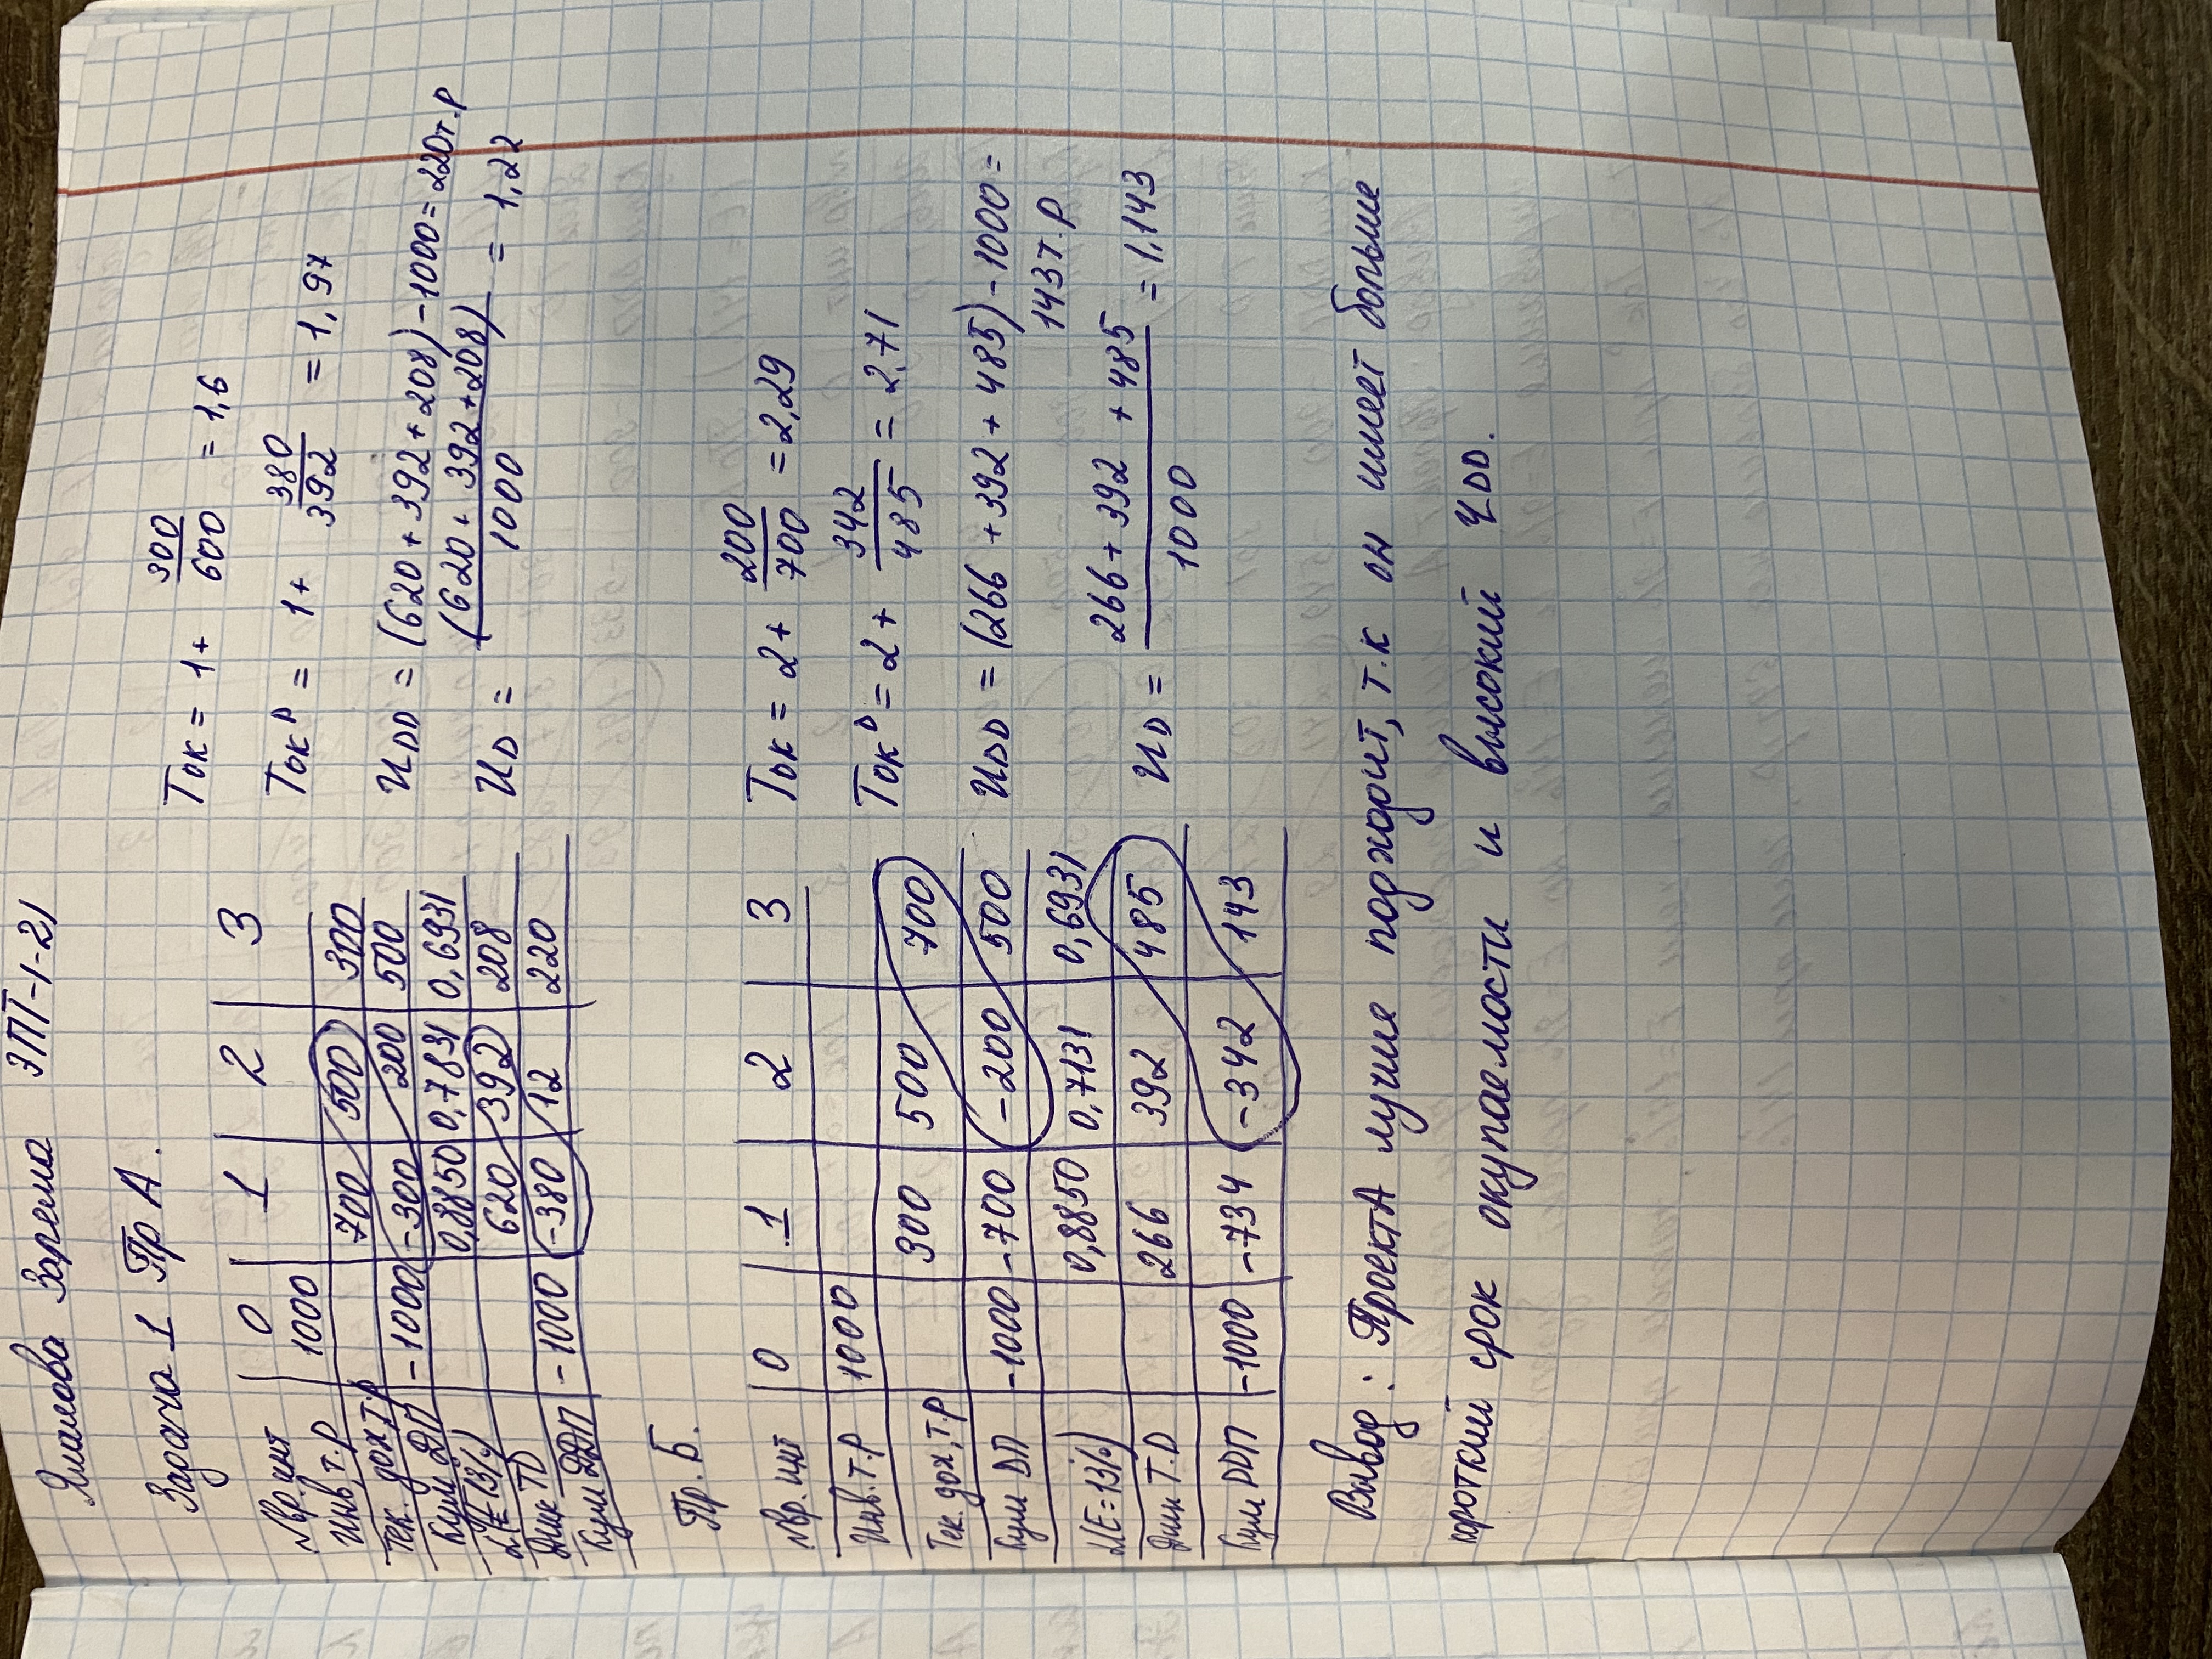 Ялалова Зарема ЭПТ-1-21
Задача 1 Пр А.
№вр.инт 0 1 2 3
Инв, т.р 1000
Тек. дох, т.р 700 500 300
Кум ДП -1000 -300 200 500
α(E=13%) 0,8850 0,7831 0,6931
Диск ТD 620 392 208
Кум ДДП -1000 -380 12 220
Ток = 1+ 300/600 = 1,6
Ток D = 1+ 380/392 = 1,97
ИDD = (620+392+208)-1000=220т.р
ИD = (620+392+208)/1000 = 1,22
Пр. Б.
№вр. инт 0 1 2 3
Инв. т.р 1000
Тек. дох, т.р 300 500 700
Кум DП -1000 -700 -200 500
α(E=13%) 0,8850 0,7131 0,6931
Диск Т.D 266 392 485
Кум DDП -1000 -734 -342 143
Ток = 2+ 200/700 = 2,29
Ток D = 2+ 342/485 = 2,71
ИDD = (266+392+485)-1000=
143т.р
ИD = 266+392+485/1000 = 1,143
Вывод: Проект А лучше подходит, т.к он имеет больше
короткий срок окупаемости и высокий ЧDD.